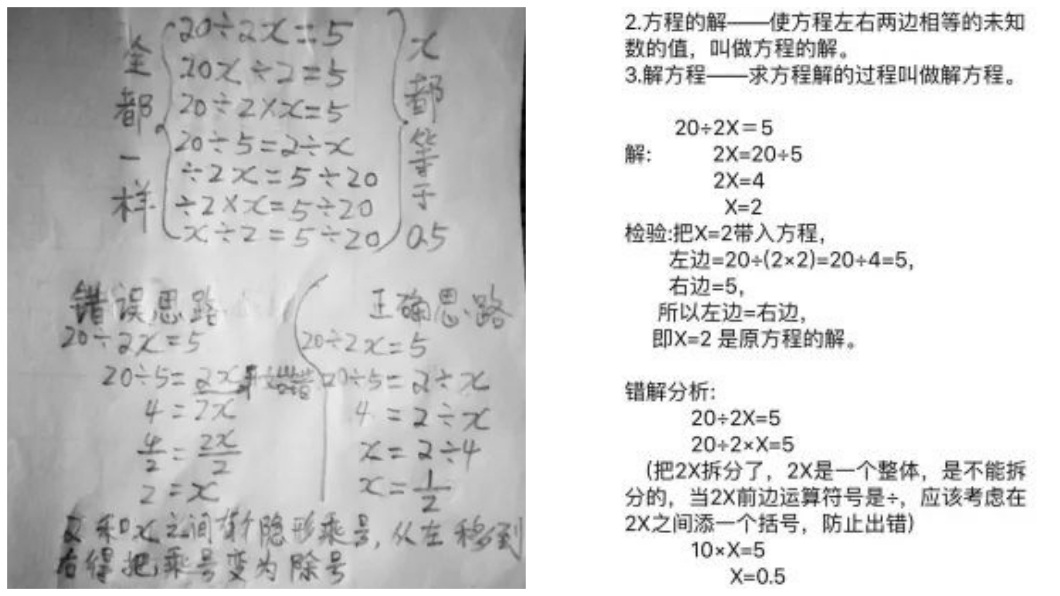 全都一样
20÷2x=5
20x÷2=5
20÷2×x=5
20÷5=2÷x
÷2x=5÷20
÷2×x=5÷20
x÷2=5÷20
x都等于0.5
错误思路
20÷2x=5
20÷5=2x
4=2x
4/2=2x/2
2=x
正确思路
20÷2x=5
20÷5=2÷x
4=2÷x
x=2÷4
x=1/2
和x之间有个隐形乘号,从左移到
右得把乘号变为除号
2.方程的解——使方程左右两边相等的未知
数的值，叫做方程的解。
3.解方程——求方程解的过程叫做解方程。
20÷2X=5
解: 2X=20÷5
2X=4
X=2
检验:把X=2带入方程，
左边=20÷(2×2)=20÷4=5,
右边=5,
所以左边=右边，
即X=2 是原方程的解。
错解分析:
20÷2X=5
20÷2×X=5
（把2X拆分了，2X是一个整体，是不能拆
分的，当2X前边运算符号是÷，应该考虑在
2X之间添一个括号，防止出错）
10×X=5
X=0.5